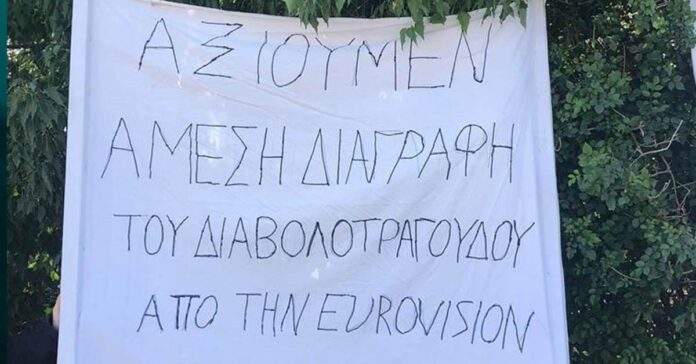 ΑΞΙΟΥΜΕΝ
ΑΜΕΣΗ ΔΙΑΓΡΑΦΗ
ΤΟΥ ΔΙΑΒΟΛΟΤΡΑΓΟΥΔΟΥ
ΑΠΟ ΤΗΝ EUROVISION